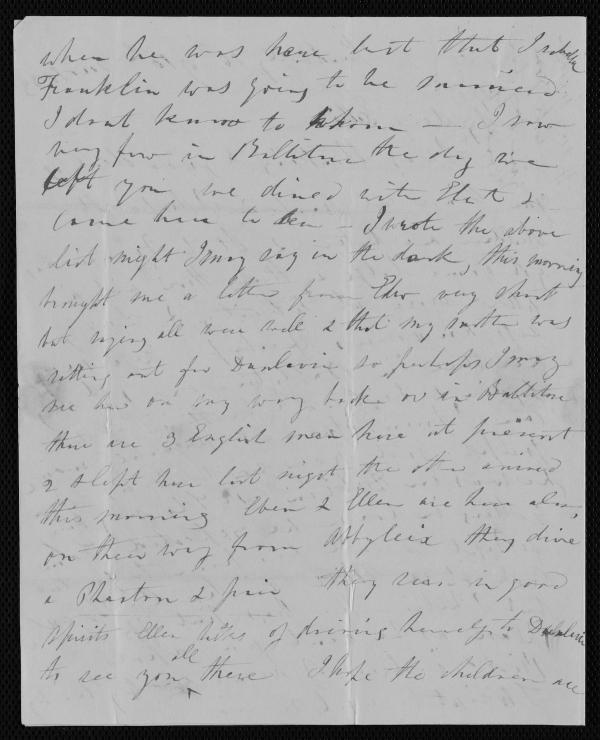 when he was here but that Isabella
Franklin was going to be married
I dont know to whom — I saw
very few in Ballitore the day we
left you we dined with Eliz.th &
came here to tea — I wrote the above
last night I may say in the dark, this morning
brought me a letter from Edw very short
but saying all were well & that my mother was
sitting out for Dunlavin so perhaps I may
see her on my way back or in Ballitore
there are 3 English men here at present
2 slept here last night the other arrived
this morning Eben & Ellen are here also,
on their way from Abbyleix they drive
a Phaeton & pair they seem in good
spirits Ellen talks of driving herself to Dunlavin
to see you all there I hope the children are